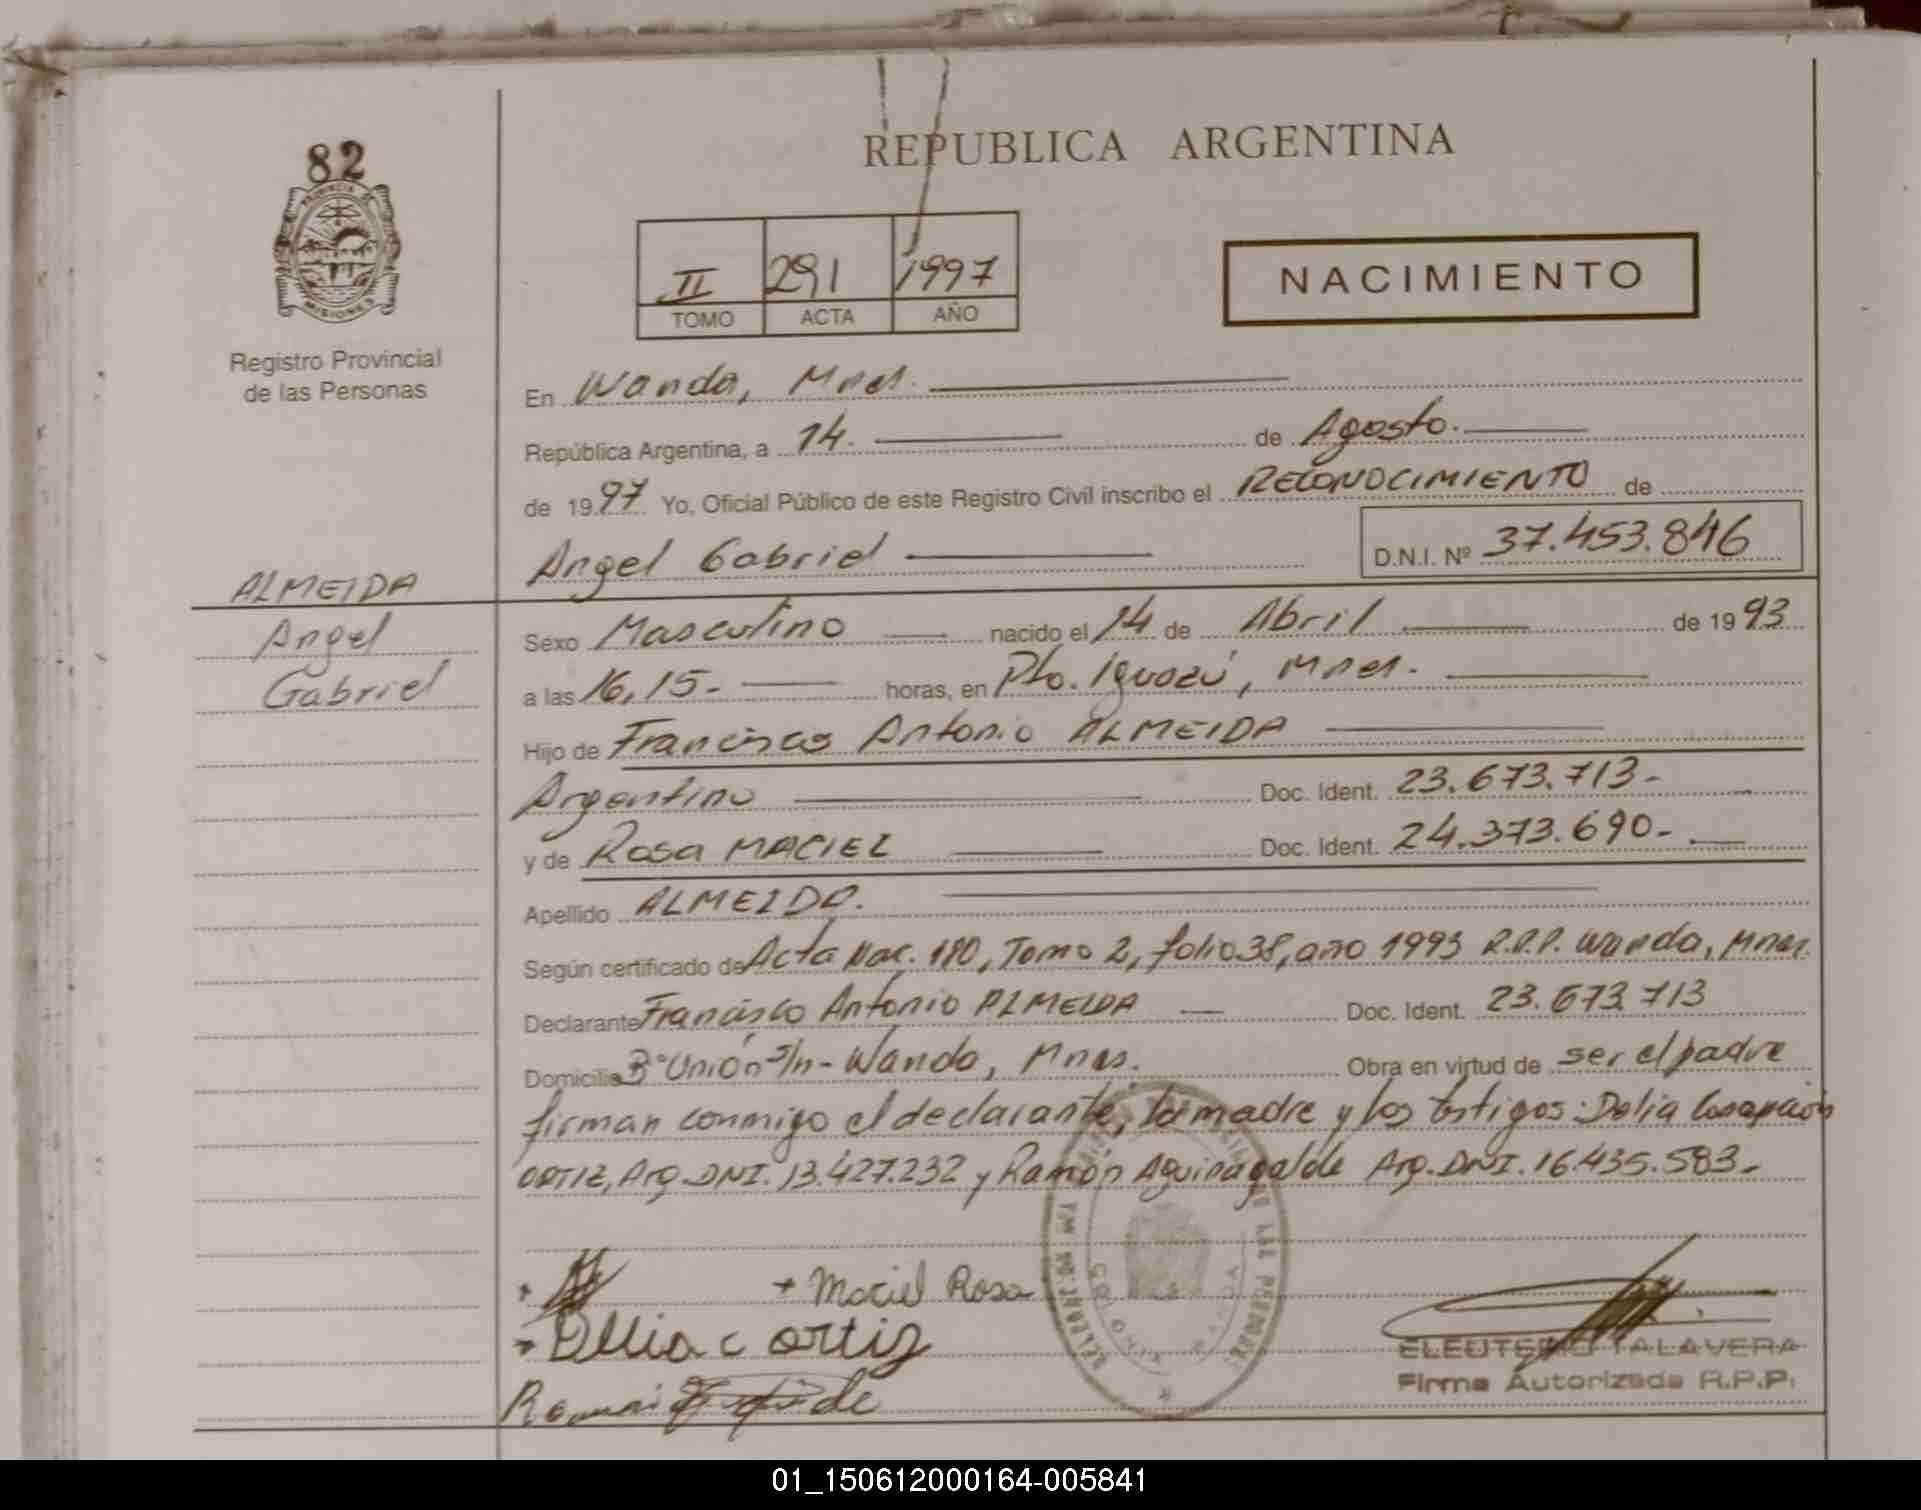 82
PROVINCIA DE
MISIONES
Registro Provincial
de las Personas
REPUBLICA ARGENTINA
II 291 1997
TOMO ACTA AÑO
NACIMIENTO
En Wanda, Mnes.
República Argentina, a 14. de Agosto.
de 1997 Yo, Oficial Público de este Registro Civil inscribo el RECONOCIMIENTO de
Angel Gabriel D.N.I. Nº 37.453.846
ALMEIDA
Angel
Gabriel
Sexo Masculino nacido el 14 de Abril de 1993
a las 16,15.- horas, en Pto. Iguazú, Mnes.
Hijo de Francisco Antonio ALMEIDA
Argentino Doc. Ident. 23.673.713-
y de Rosa MACIEL Doc. Ident. 24.373.690-
Apellido ALMEIDA.
Según certificado de Acta Nac. 180, Tomo 2, folio 38, año 1993 R.P.P. Wanda, Mnes.
Declarante Francisco Antonio ALMEIDA Doc. Ident. 23.673.713
Domicilio Bº Unión s/n - Wanda, Mnes. Obra en virtud de ser el padre
firman conmigo el declarante, la madre y los testigos: Delia
ORTIZ, Arg. DNI. 13.427.232 y Ramón Aguinagalde Arg. DNI. 16.435.583.-
+ Maciel Rosa
Delia c ortiz
WANDA
ELEUTERIO TALAVERA
Firma Autorizada R.P.P.
01_150612000164-005841